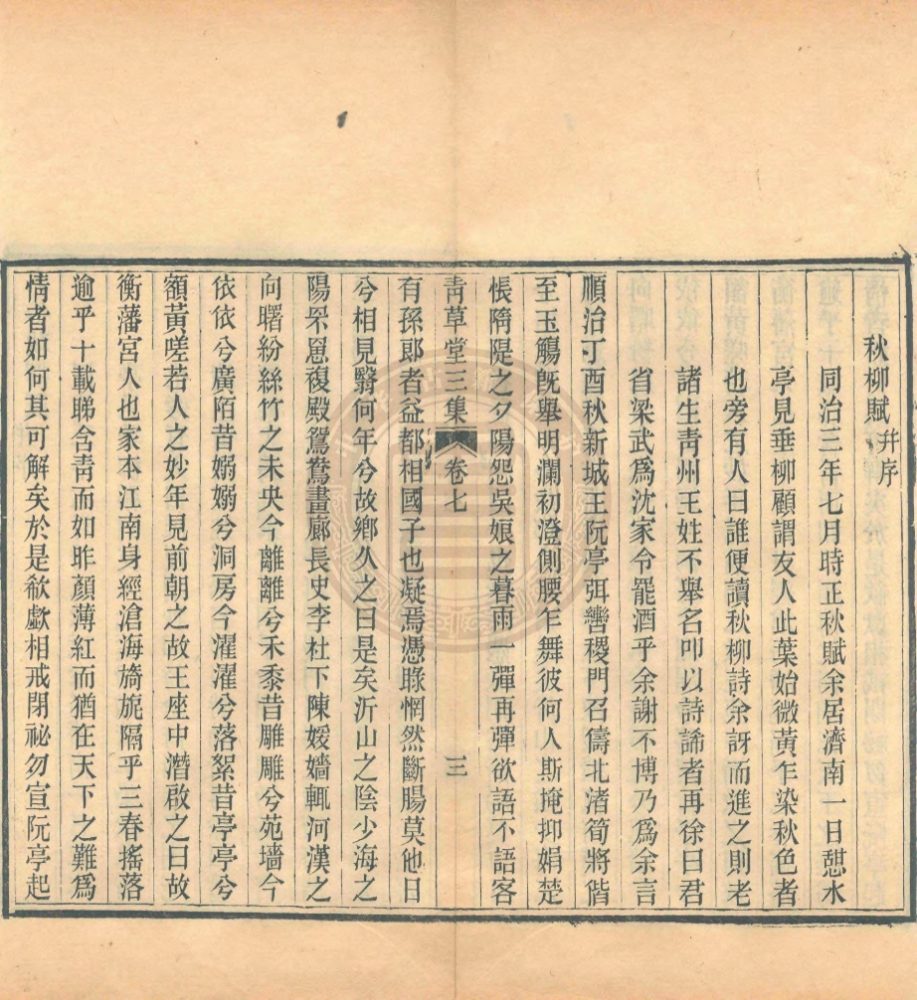 秋柳賦 幷序
同治三年七月時正秋賦余居濟南一日憇水
亭見垂柳顧謂友人此葉始微黃乍染秋色者
也旁有人曰誰便讀秋柳詩余訝而進之則老
諸生靑州王姓不舉名叩以詩諦者再徐曰君
省梁武爲沈家令罷酒乎余謝不博乃爲余言
順治丁酉秋新城王阮亭弭轡稷門召儔北渚筍將偕
至玉觴旣舉明瀾初澄側腰乍舞彼何人斯掩抑娟楚
悵隋隄之夕陽怨吳娘之暮雨一彈再彈欲語不語客
靑草堂三集 卷七 三
有孫郎者益都相國子也凝焉憑睩惘然斷腸莫他日
兮相見翳何年兮故鄉久之曰是矣沂山之陰少海之
陽罘罳複殿鴛鴦畫廊長史李杜下陳媛嬙輒河漢之
向曙紛絲竹之未央今離離兮禾黍昔雕雕兮苑墻今
依依兮廣陌昔嫋嫋兮洞房今濯濯兮落絮昔亭亭兮
額黃嗟若人之妙年見前朝之故王座中潛啟之曰故
衡藩宮人也家本江南身經滄海旖旎隔乎三春搖落
逾乎十載睇含靑而如昨顏薄紅而猶在天下之難爲
情者如何其可解矣於是欷歔相戒閉祕勿宣阮亭起